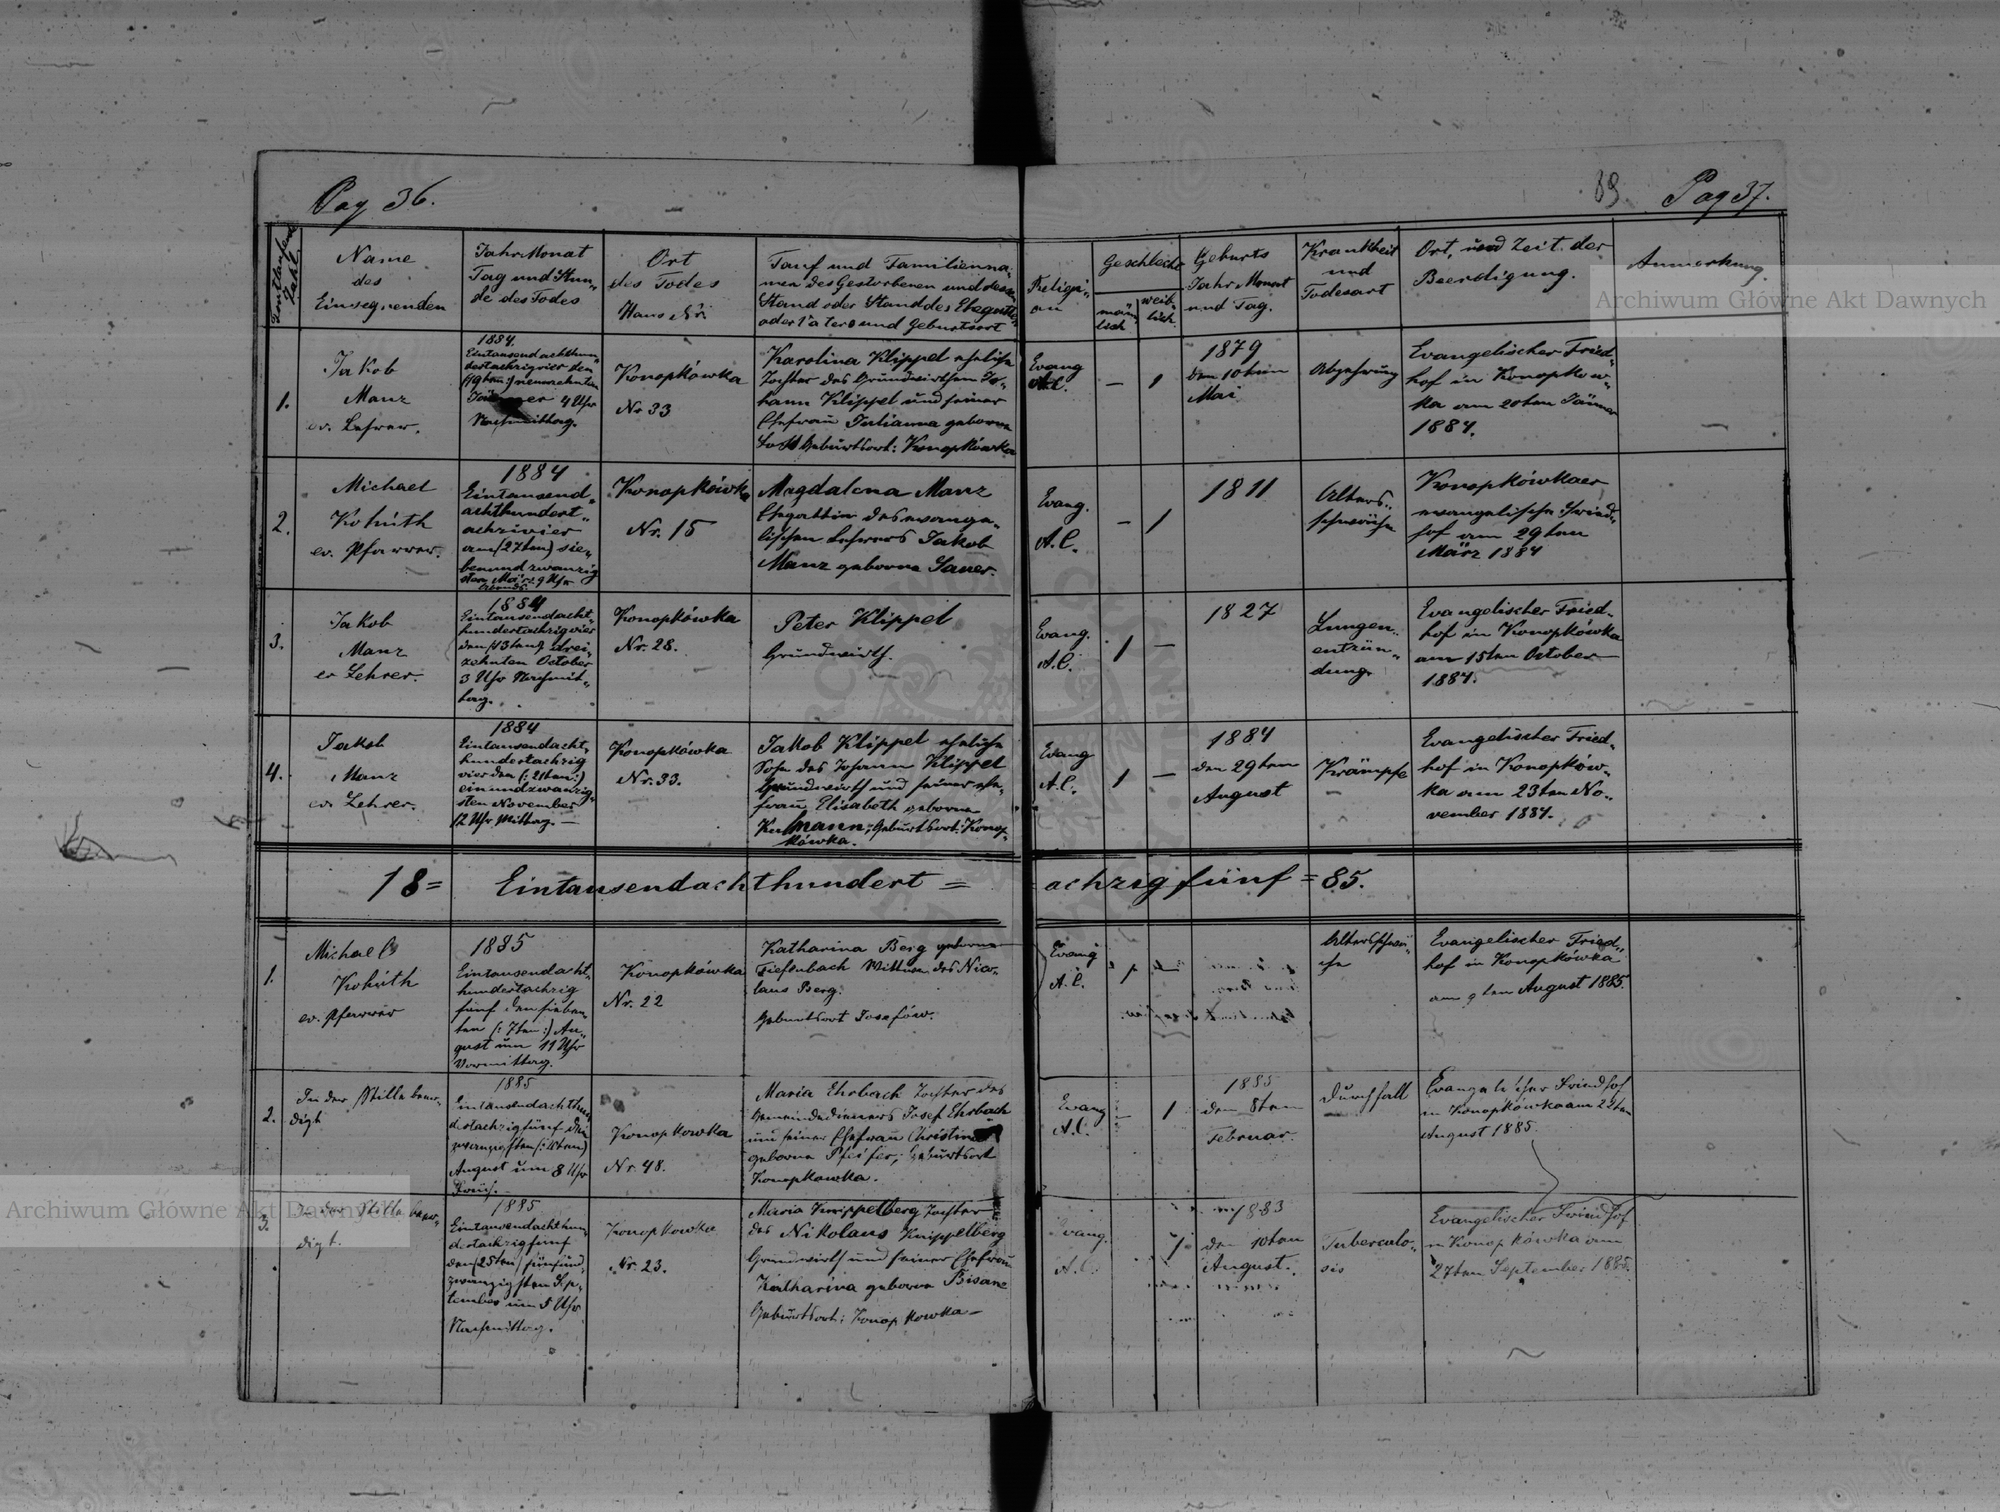 Pag 36.
89. Pag 37.
Fortlaufende Zahl.
Name
des
Einsegnenden
Jahr, Monat
Tag und Stun-
de des Todes
Ort
des Todes
Haus Nr.
Tauf und Familienna-
men des Gestorbenen und dessen
Stand oder Stand des Ehegatten
oder Vaters und Geburtsort
Religi-
on
Geschlecht
män-
lich
weib-
lich.
Geburts
Jahr, Monat
und Tag.
Krankheit
und
Todesart
Ort, und Zeit der
Beerdigung.
Anmerkung.
1.
Jakob
Manz
ev. Lehrer.
1884.
Eintausendachthun-
dertachzigvier den
(19ten) neunzehnten
4 Uhr
Nachmittag.
Konopkówka
Nr 33
Karolina Klippel eheliche
Tochter des Grundwirthen Jo-
hann Klippel und seiner
Ehefrau Julianna geborne
Geburtsort: Konopkówka
Evang
A.C.
— 1
1879
den 10ten
Mai
Abzehrung
Evangelischer Fried-
hof in Konopków-
ka am 20ten Jänner
1884.
2.
Michael
Kohúth
ev. Pfarrer.
1884
Eintausend-
achthundert-
achzivier
am (27ten) sie-
benundzwanzig
sten März 9 Uhr
Abends.
Konopkówka
Nr. 15
Magdalena Manz
Ehegattin des evange-
lischen Lehrers Jakob
Manz geborne Sauer.
Evang.
A.C.
— 1
1811
Alters-
schwäche
Konopkówkaer
evangelische Fried-
hof am 29ten
März 1884
3.
Jakob
Manz
ev Lehrer.
1884
Eintausendacht-
hundertachzigvier
den (13ten) drei-
zehnten October
3 Uhr Nachmit-
tag.
Konopkówka
Nr. 28.
Peter Klippel
Grundwirth.
Evang.
A.C.
1 —
1827
Lungen-
entzün-
dung.
Evangelischer Fried-
hof in Konopkówka
am 15ten October
1884.
4.
Jakob
Manz
ev. Lehrer.
1884
Eintausendacht-
hundertachzig
vier den (: 21ten :)
einundzwanzig-
sten November
12 Uhr Mittag. —
Konopkówka
Nr. 33.
Jakob Klippel eheliche
Sohn des Johann Klippel
Grundwirth und seiner Ehe-
frau Elisabeth geborne
Geburtsort: Konop-
kówka.
Evang
A.C.
1 —
1884
den 29ten
August
Krämpfe
Evangelischer Fried-
hof in Konopków-
ka am 23ten No-
vember 1884.
18 = Eintausendachthundert = achzigfünf = 85.
1.
Michael
Kohúth
ev. Pfarrer
1885
Eintausendacht-
hundertachzig
fünf den sieben-
ten (: 7ten :) Au-
gust um 11 Uhr
Vormittag.
Konopkówka
Nr. 22
Katharina Berg geborne
Tiefenbach Wittwe des Nico-
laus Berg.
Geburtsort Josefów.
Evang
A.C.
Altersschwä-
che
Evangelischer Fried-
hof in Konopkówka
am 9ten August 1885.
2.
In der Stille beer-
digt
1885
Eintausendachthun-
dertachzigfünf den
zwanzigsten
August um 8 Uhr
Früh.
Konopkowka
Nr. 48.
Maria Ehrbach Tochter des
Gemeindedieners Josef Ehrbach
und seiner Ehefrau Christina
geborne Pfeifer; Geburtsort
Konopkowka.
Evang
A.C.
— 1
1885
den 8ten
Februar.
Durchfall
Evangelischer Friedhof
in Konopkówka am 22ten
August 1885.
3.
In der Stille beer-
digt.
1885
Eintausendachthun-
dertachzigfünf
den (25ten) fünfund-
zwanzigsten Sep-
tember um 5 Uhr
Nachmittag.
Konopkowka
Nr. 23.
Maria Knippelberg Tochter
des Nikolaus Knippelberg
Grundwirth und seiner Ehefrau
Katharina geborne Bisanz
Geburtsort: Konopkowka —
Evang.
A.C.
1
1883
den 10ten
August.
Tuberculo-
sis
Evangelischer Friedhof
in Konopkówka am
27ten September 1885.
Archiwum Główne Akt Dawnych
Archiwum Główne Akt Dawnych